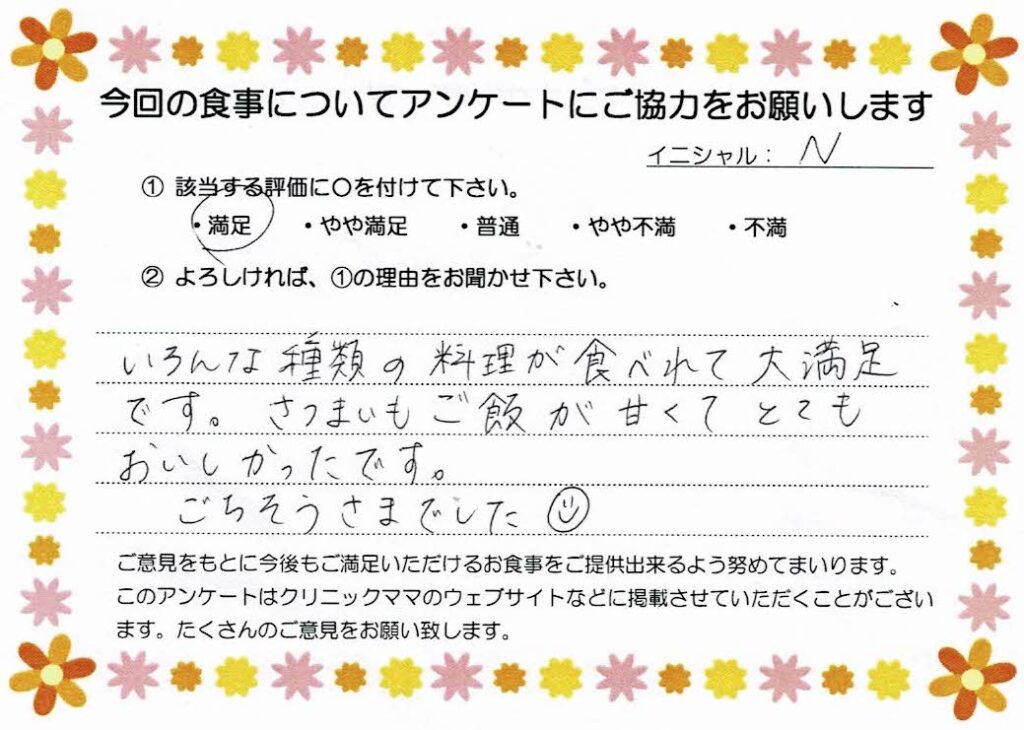 今回の食事についてアンケートにご協力をお願いします
イニシャル： N
① 該当する評価に〇を付けて下さい。
・満足 ・やや満足 ・普通 ・やや不満 ・不満
② よろしければ、①の理由をお聞かせ下さい。
いろんな種類の料理が食べれて大満足
です。さつまいもご飯が甘くてとても
おいしかったです。
ごちそうさまでした☺
ご意見をもとに今後もご満足いただけるお食事をご提供出来るよう努めてまいります。
このアンケートはクリニックママのウェブサイトなどに掲載させていただくことがござい
ます。たくさんのご意見をお願い致します。